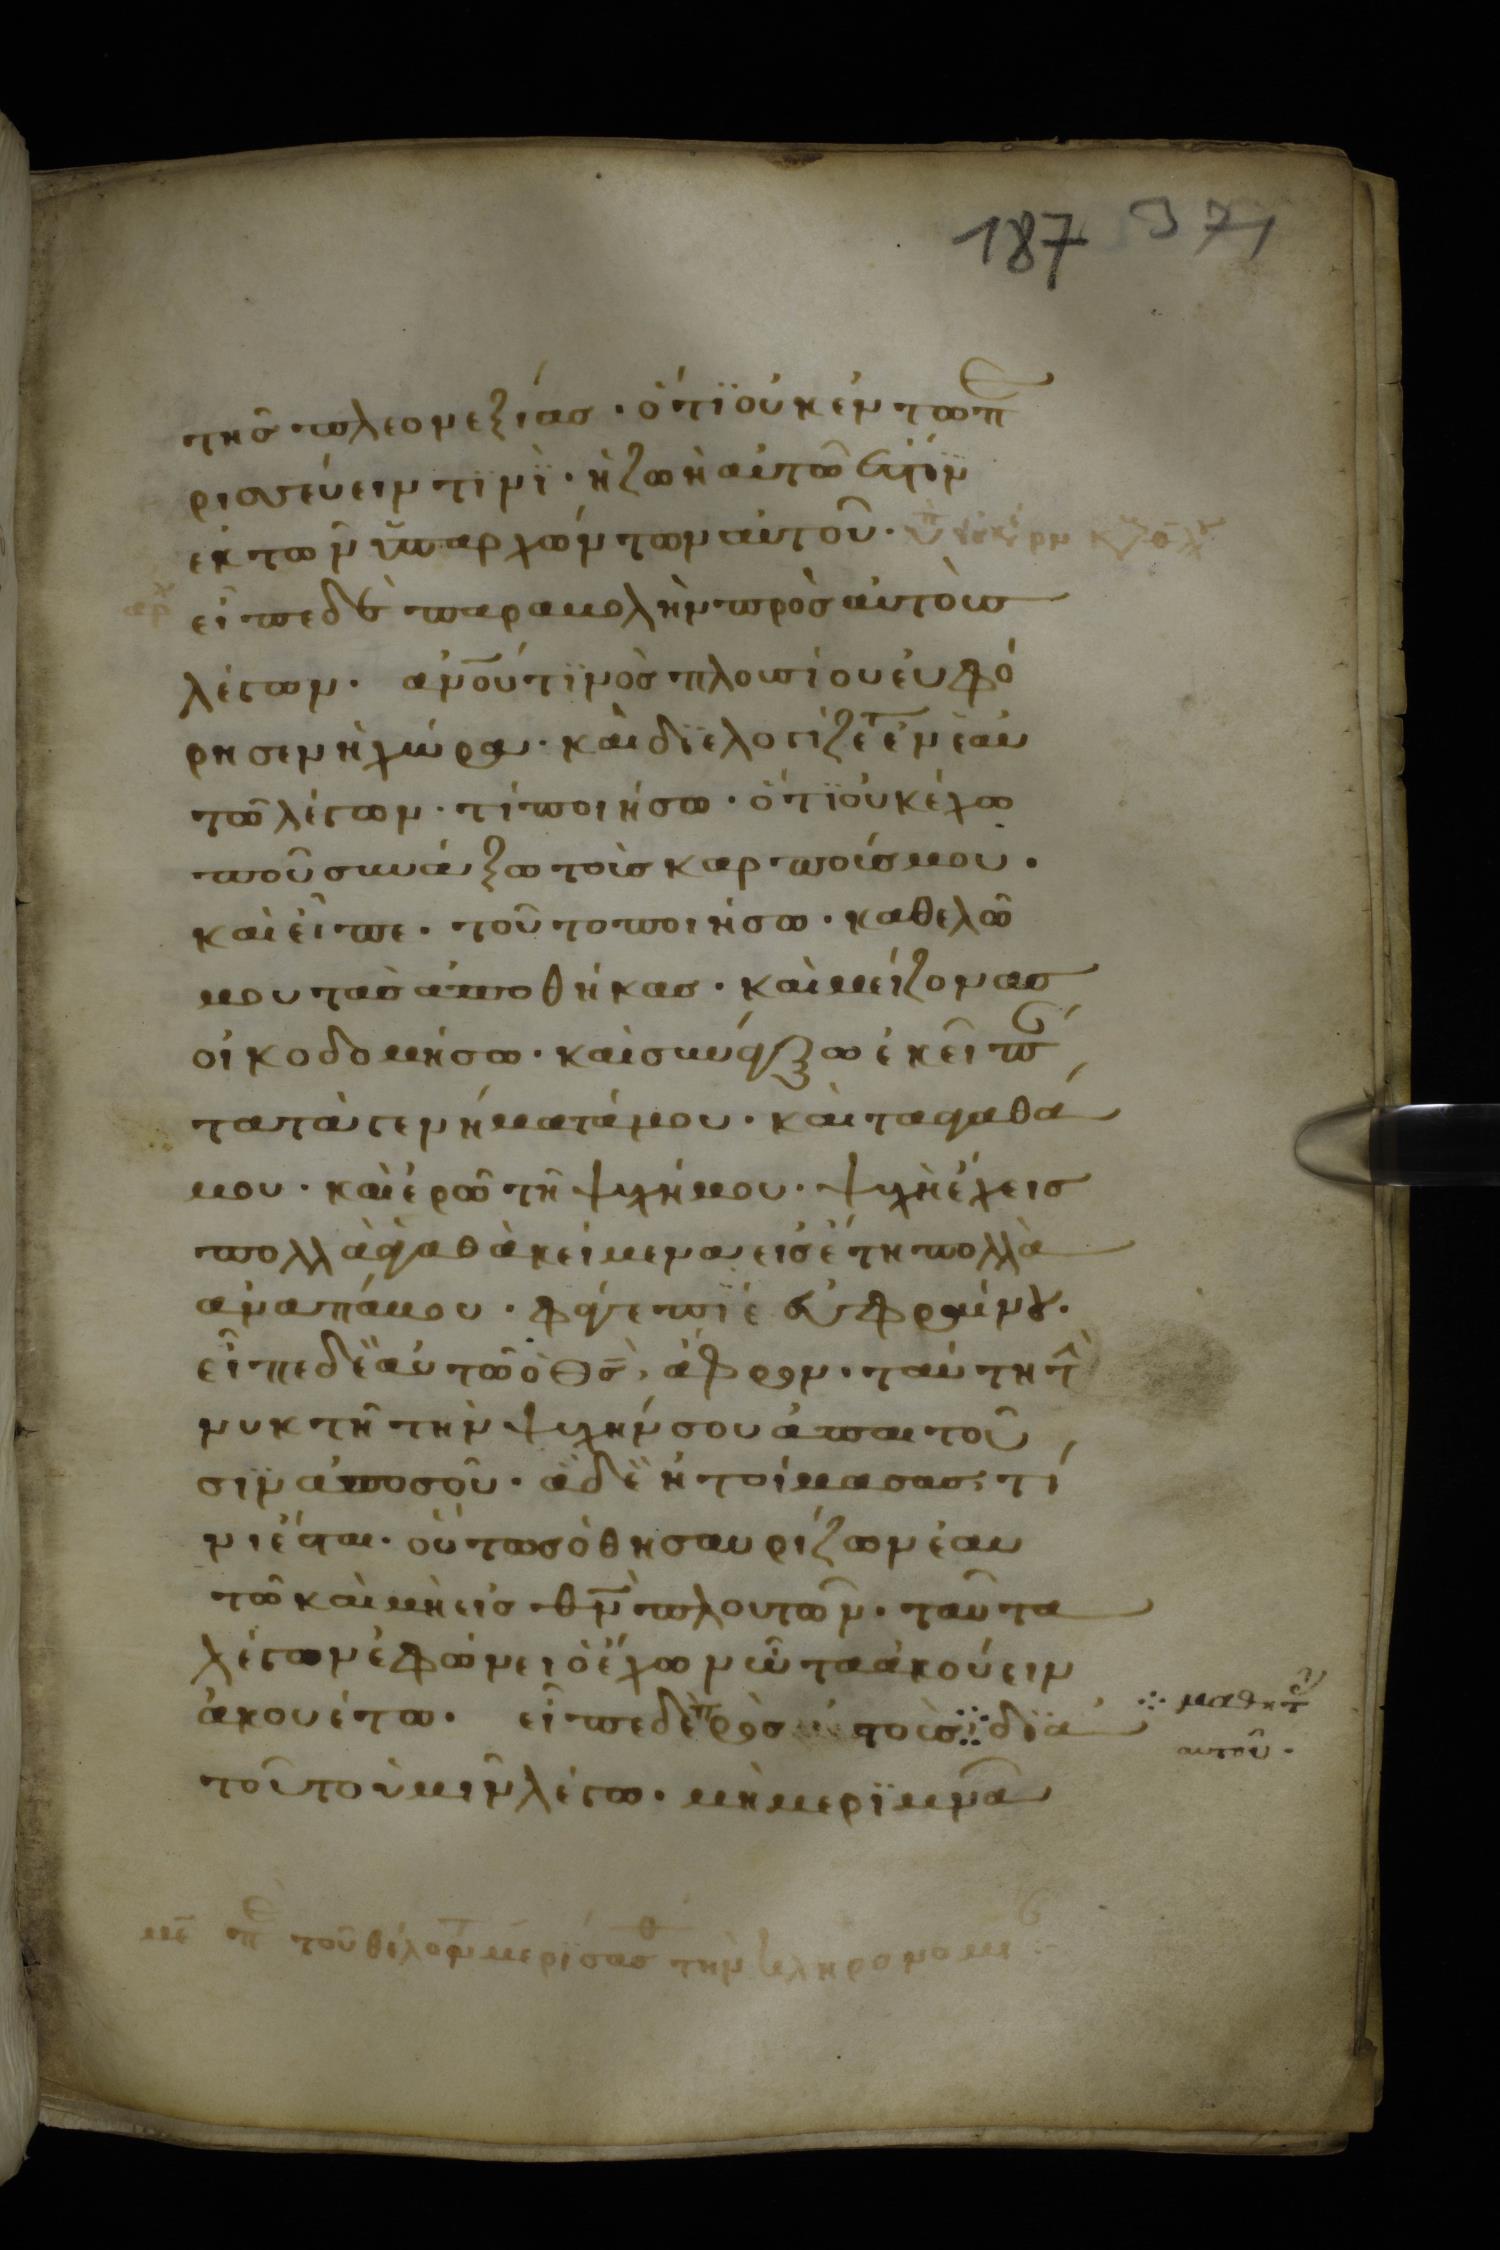 187 371
τῆς πλεονεξίας · ὅτι οὐκ ἐν τῶ π
ρισσεύειν τινὶ · ἡ ζωὴ αὐτῶ ἐστὶν
ἐκ τῶν ὑπαρχόντων αὐτοῦ ·
εἶπε δὲ παραβολὴν πρὸς αὐτοὺς
λέγων · ἀνου τινὸς πλουσίου εὐφό
ρησεν ἡ χώρα · καὶ διελογίζετ ἐν ἑαυ
τῶ λέγων · τί ποιήσω · ὅτι οὐκ ἔχω
ποῦ συνάξω τοὺς καρπούς μου ·
καὶ εἶπε · τοῦτο ποιήσω · καθελῶ
μου τὰς ἀποθήκας · καὶ μείζονας
οἰκοδομήσω · καὶ συνάξω ἐκεῖ π
τα τὰ γενήματά μου · καὶ τὰ ἀγαθά
μου · καὶ ἐρῶ τῆ ψυχῆ μου · ψυχὴ ἔχεις
πολλὰ ἀγαθὰ κείμενα εἰς ἔτη πολλὰ
ἀναπάυου · φάγε πίε εὐφραίνου ·
εἶπε δὲ αὐτῶ ὁ θς · ἄφρων · ταύτη τ
νυκτὶ τὴν ψυχήν σου ἀπαιτοῦ
σιν ἀπὸ σοῦ · ἃ δὲ ἡτοίμασας, τί
νι ἔσται · οὕτως ὁ θησαυρίζων ἑαυ
τῶ καὶ μὴ εἰς θν πλουτῶν · ταῦτα
λέγων ἐφώνει ὁ ἔχων ὦτα ἀκούειν
ἀκουέτω · εἶπε δὲ πρὸς τοὺς ⁘ διὰ
⁘ μαθητ
αυτοῦ ·
τοῦτο ὑμῖν λέγω · μὴ μεριμνᾶ
τοῦ θέλοντ μερίσασθ τὴν κληρονομι